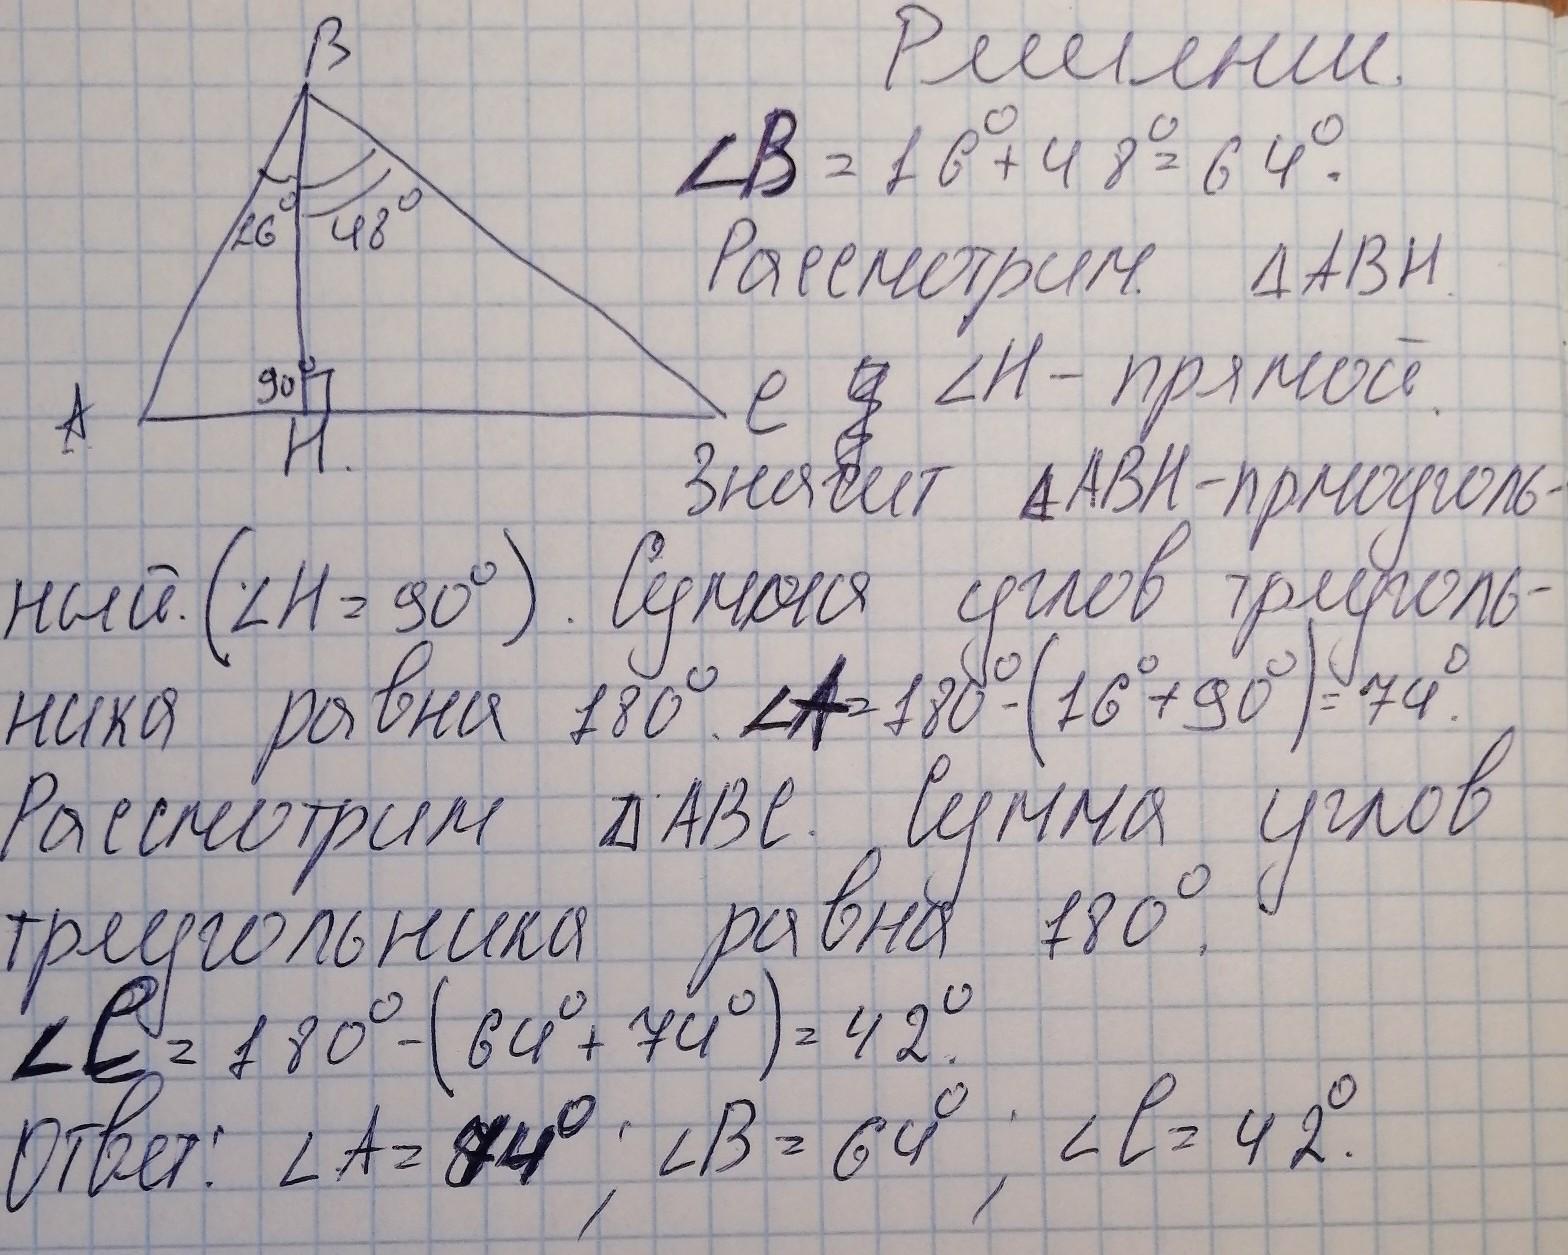 B
Решении.
∠B = 16° + 48° = 64°.
16° 48°
Рассмотрим ΔABH.
90°
A
H.
C
∠H - прямой.
Значит ΔABH - прмоуголь-
ный. (∠H = 90°). Сумма углов треуголь-
ника равна 180°. ∠A = 180° - (16° + 90°) = 74°.
Рассмотрим ΔABC. Сумма углов
треугольника равна 180°.
∠C = 180° - (64° + 74°) = 42°.
Ответ: ∠A = 74°; ∠B = 64°; ∠C = 42°.